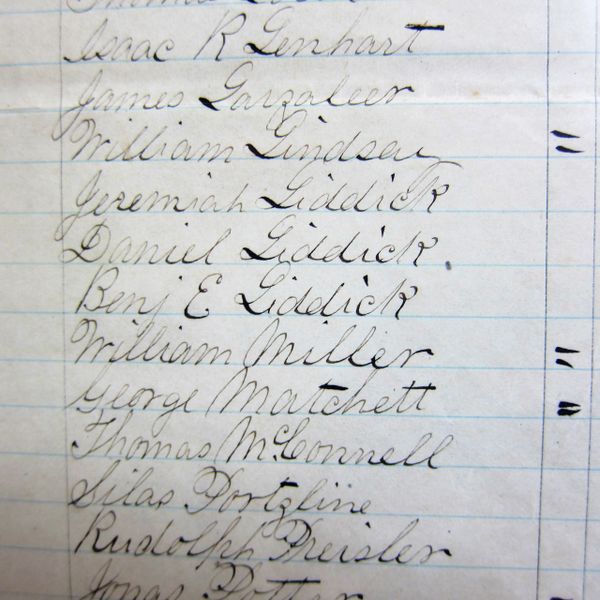 Thomas
Isaac R Lenhart
James Larzaleer
William Lindsay "
Jeremiah Liddick
Daniel Liddick
Benj E Liddick
William Miller "
George Matchett "
Thomas McConnell
Silas Portzline
Rudolph Preisler
Jonas Potter "